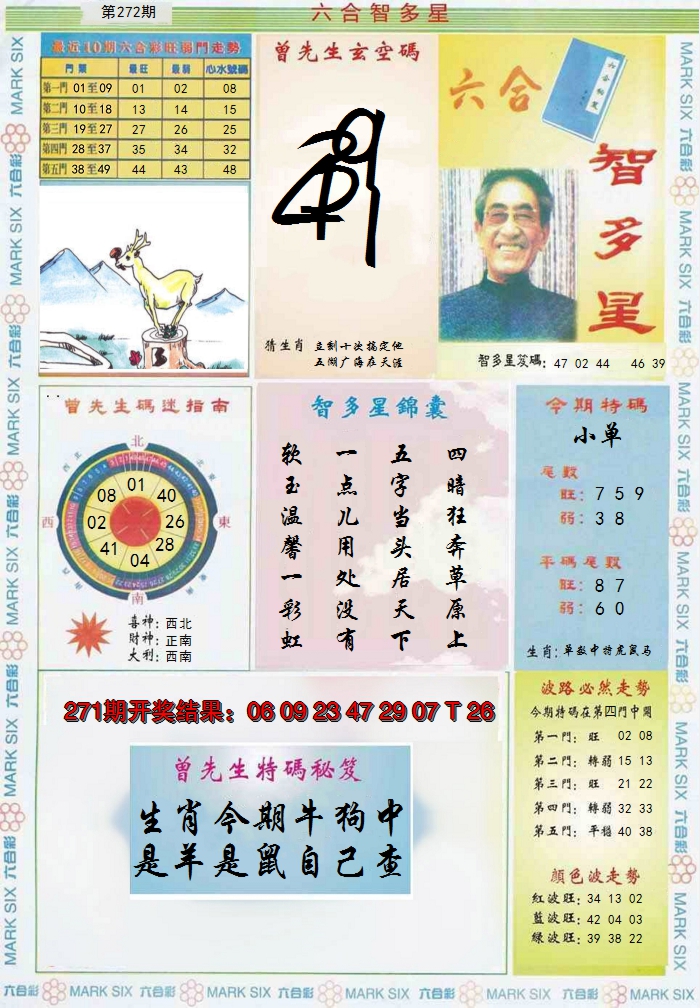 第272期
六合智多星
最近10期六合彩旺弱門走勢
門類 最旺 最弱 心水號碼
第一門 01至09 01 02 08
第二門 10至18 13 14 15
第三門 19至27 27 26 25
第四門 28至37 35 34 32
第五門 38至49 44 43 48
曾先生玄空碼
猜生肖
立刻十次搞定他
五湖广海在天涯
六合
六合秘笈
智多星
智多星笈碼：47 02 44 46 39
曾先生碼迷指南
北
西北
東北
西
東
西南
東南
南
01
08 40
02 26
41 28
04
喜神：西北
財神：正南
大利：西南
智多星錦囊
四暗狂奔草原上
五字当头居天下
一点儿用处没有
软玉温馨一彩虹
今期特碼
小单
尾數
旺：7 5 9
弱：3 8
平碼尾數
旺：8 7
弱：6 0
生肖：单数中特虎鼠马
271期开奖结果：06 09 23 47 29 07 T 26
曾先生特碼秘笈
生肖今期牛狗中
是羊是鼠自己查
波路必然走勢
今期特碼在第四門中開
第一門：旺 02 08
第二門：轉弱 15 13
第三門：旺 21 22
第四門：轉弱 32 33
第五門：平穩 40 38
顏色波走勢
紅波旺：34 13 02
藍波旺：42 04 03
綠波旺：39 38 22
六合彩 MARK SIX 六合彩 MARK SIX 六合彩 MARK SIX 六合彩 MARK SIX 六合彩 MARK SIX